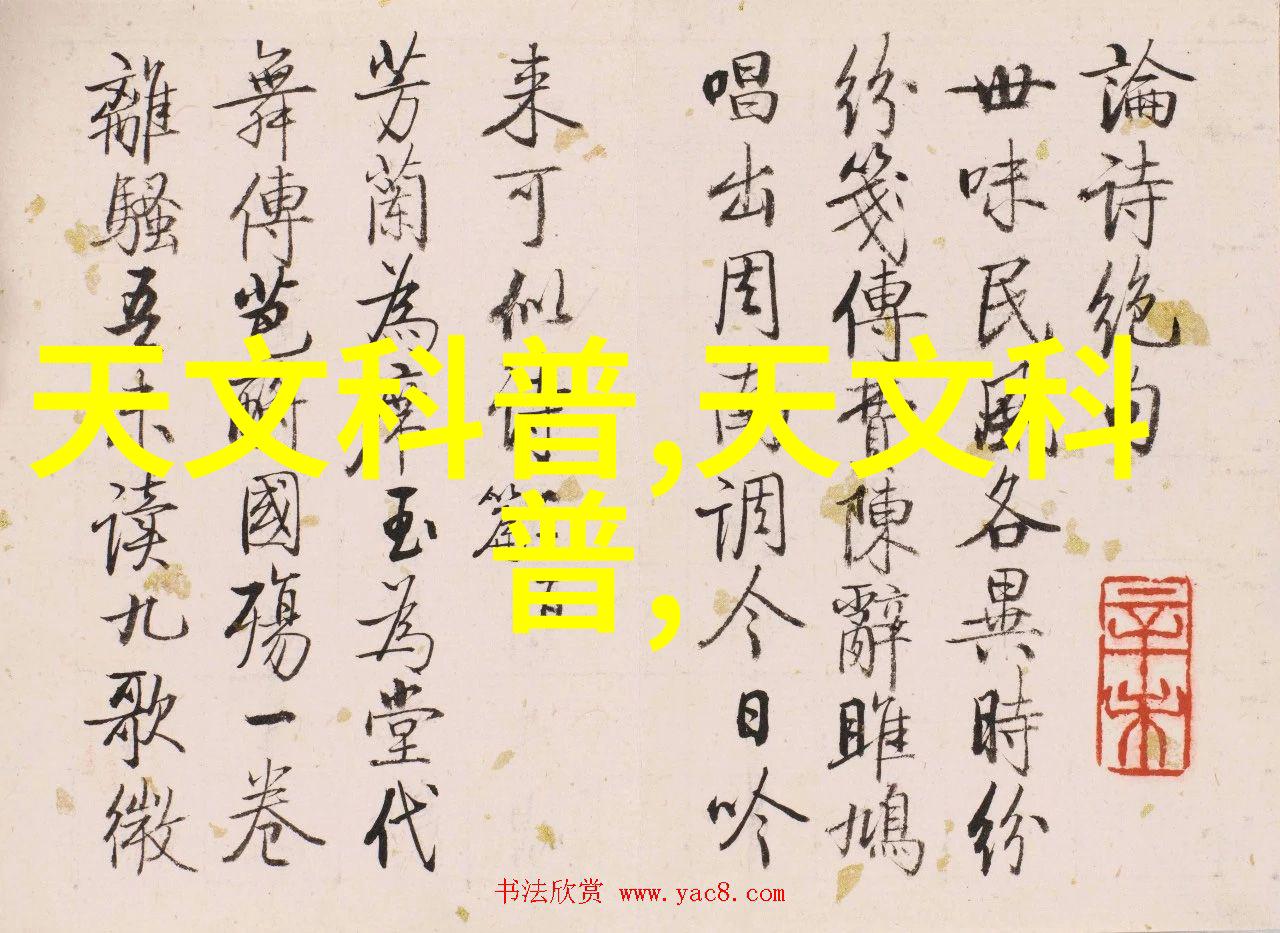 論诗绝句
世味民風各異時纷
纷笺傳費陳辭雎鳩
唱出周南调今日吟
来可似诗
芳蘭為席玉為堂代
舞傳芭酹國殤一卷
離騷吾未读九歌微
辛未
天文科普,天文科
普,
书法欣赏 www.yac8.com